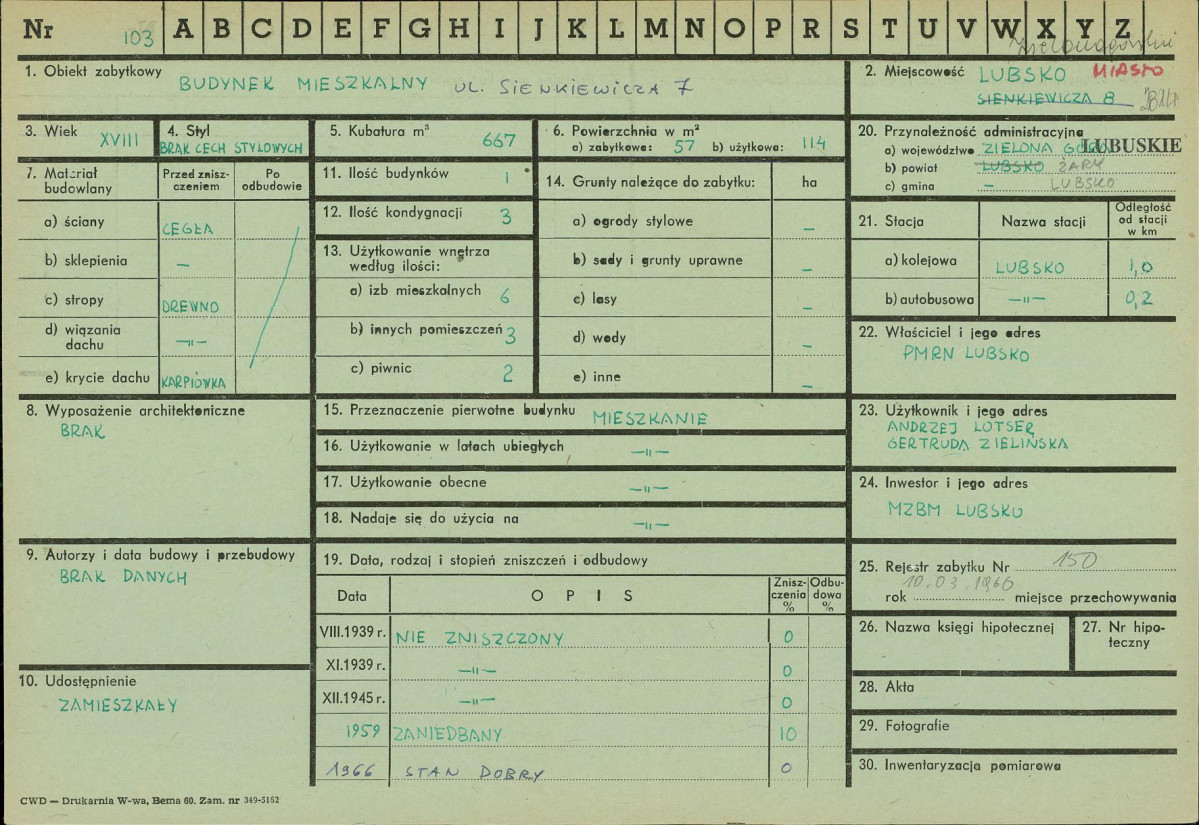 Nr 103 A B C D E F G H I J K L M N O P R S T U V W X Y Z
1. Obiekt zabytkowy BUDYNEK MIESZKALNY UL. SIENKIEWICZA 7
2. Miejscowość LUBSKO MIASTO
SIENKIEWICZA 8
3. Wiek XVIII
4. Styl
BRAK CECH STYLOWYCH
5. Kubatura m³ 667
6. Powierzchnia w m²
a) zabytkowa: 57 b) użytkowa: 114
7. Materiał budowlany
Przed znisz-
czeniem
Po
odbudowie
a) ściany CEGŁA
b) sklepienia —
c) stropy DREWNO
d) wiązania
dachu —„—
e) krycie dachu KARPIÓWKA
8. Wyposażenie architektoniczne
BRAK
9. Autorzy i data budowy i przebudowy
BRAK DANYCH
10. Udostępnienie
ZAMIESZKAŁY
11. Ilość budynków 1
12. Ilość kondygnacji 3
13. Użytkowanie wnętrza
według ilości:
a) izb mieszkalnych 6
b) innych pomieszczeń 3
c) piwnic 2
14. Grunty należące do zabytku: ha
a) ogrody stylowe —
b) sady i grunty uprawne —
c) lasy —
d) wody —
e) inne —
15. Przeznaczenie pierwotne budynku MIESZKANIE
16. Użytkowanie w latach ubiegłych —„—
17. Użytkowanie obecne —„—
18. Nadaje się do użycia na —„—
19. Data, rodzaj i stopień zniszczeń i odbudowy
Data
O P I S
Znisz-
czenia
%
Odbu-
dowa
%
VIII.1939 r. NIE ZNISZCZONY 0
XI.1939 r. —„— 0
XII.1945 r. —„— 0
1959 ZANIEDBANY 10
1966 STAN DOBRY 0
20. Przynależność administracyjna
a) województwo ZIELONA GÓRA LUBUSKIE
b) powiat LUBSKO ŻARY
c) gmina — LUBSKO
21. Stacja
Nazwa stacji
Odległość
od stacji
w km
a) kolejowa LUBSKO 1,0
b) autobusowa —„— 0,2
22. Właściciel i jego adres
PMRN LUBSKO
23. Użytkownik i jego adres
ANDRZEJ LOTSER
GERTRUDA ZIELIŃSKA
24. Inwestor i jego adres
MZBM LUBSKO
25. Rejestr zabytku Nr 150
rok 10.03.1966 miejsce przechowywania
26. Nazwa księgi hipotecznej
27. Nr hipo-
teczny
28. Akta
29. Fotografie
30. Inwentaryzacja pomiarowa
CWD — Drukarnia W-wa, Bema 60. Zam. nr 349-5162